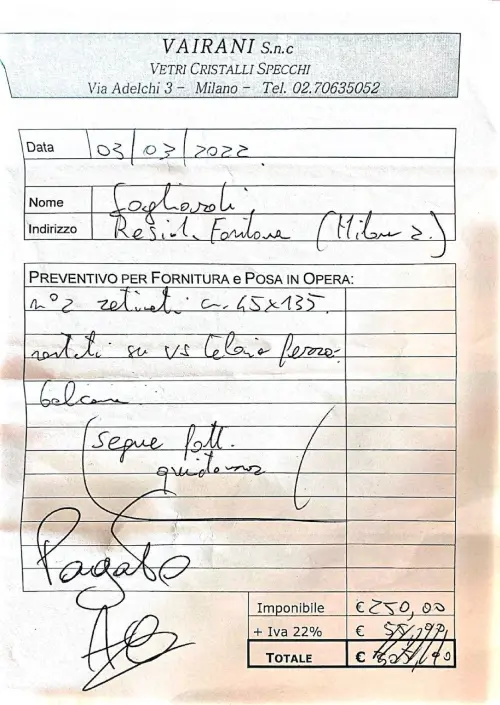 VAIRANI S.n.c
VETRI CRISTALLI SPECCHI
Via Adelchi 3 - Milano - Tel. 02.70635052
Data 03/03/2022
Nome
Indirizzo Resid. Fontana (Milano 2.)
PREVENTIVO PER FORNITURA e POSA IN OPERA:
n° 2 retinati 45x135.
su vs telaio ferro
balcone
(segue fatt.
Pagato
Imponibile € 250,00
+ Iva 22% €
TOTALE €